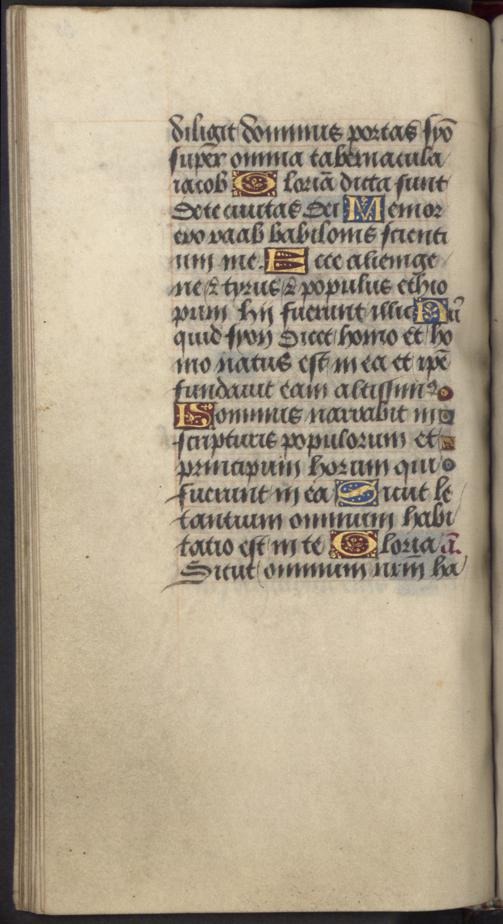 diligit dominus portas syō
super omnia tabernacula
iacob Gloriā dicta sunt
de te ciuitas dei Memor
ero raab babilonis scienti
um me. Ecce alienige
ne ⁊ tyrus ⁊ populus ethio
pum hii fuerunt illic Nū
quid syon dicet homo et ho
mo natus est in ea et ipē
fundauit eam altissim⁹
Dominus narrabit in
scripturis populorum et
principum horum qui
fuerunt in ea Sicut le
tantium omnium habi
tatio est in te Gloria ā.
Sicut omnium nr̄m ha